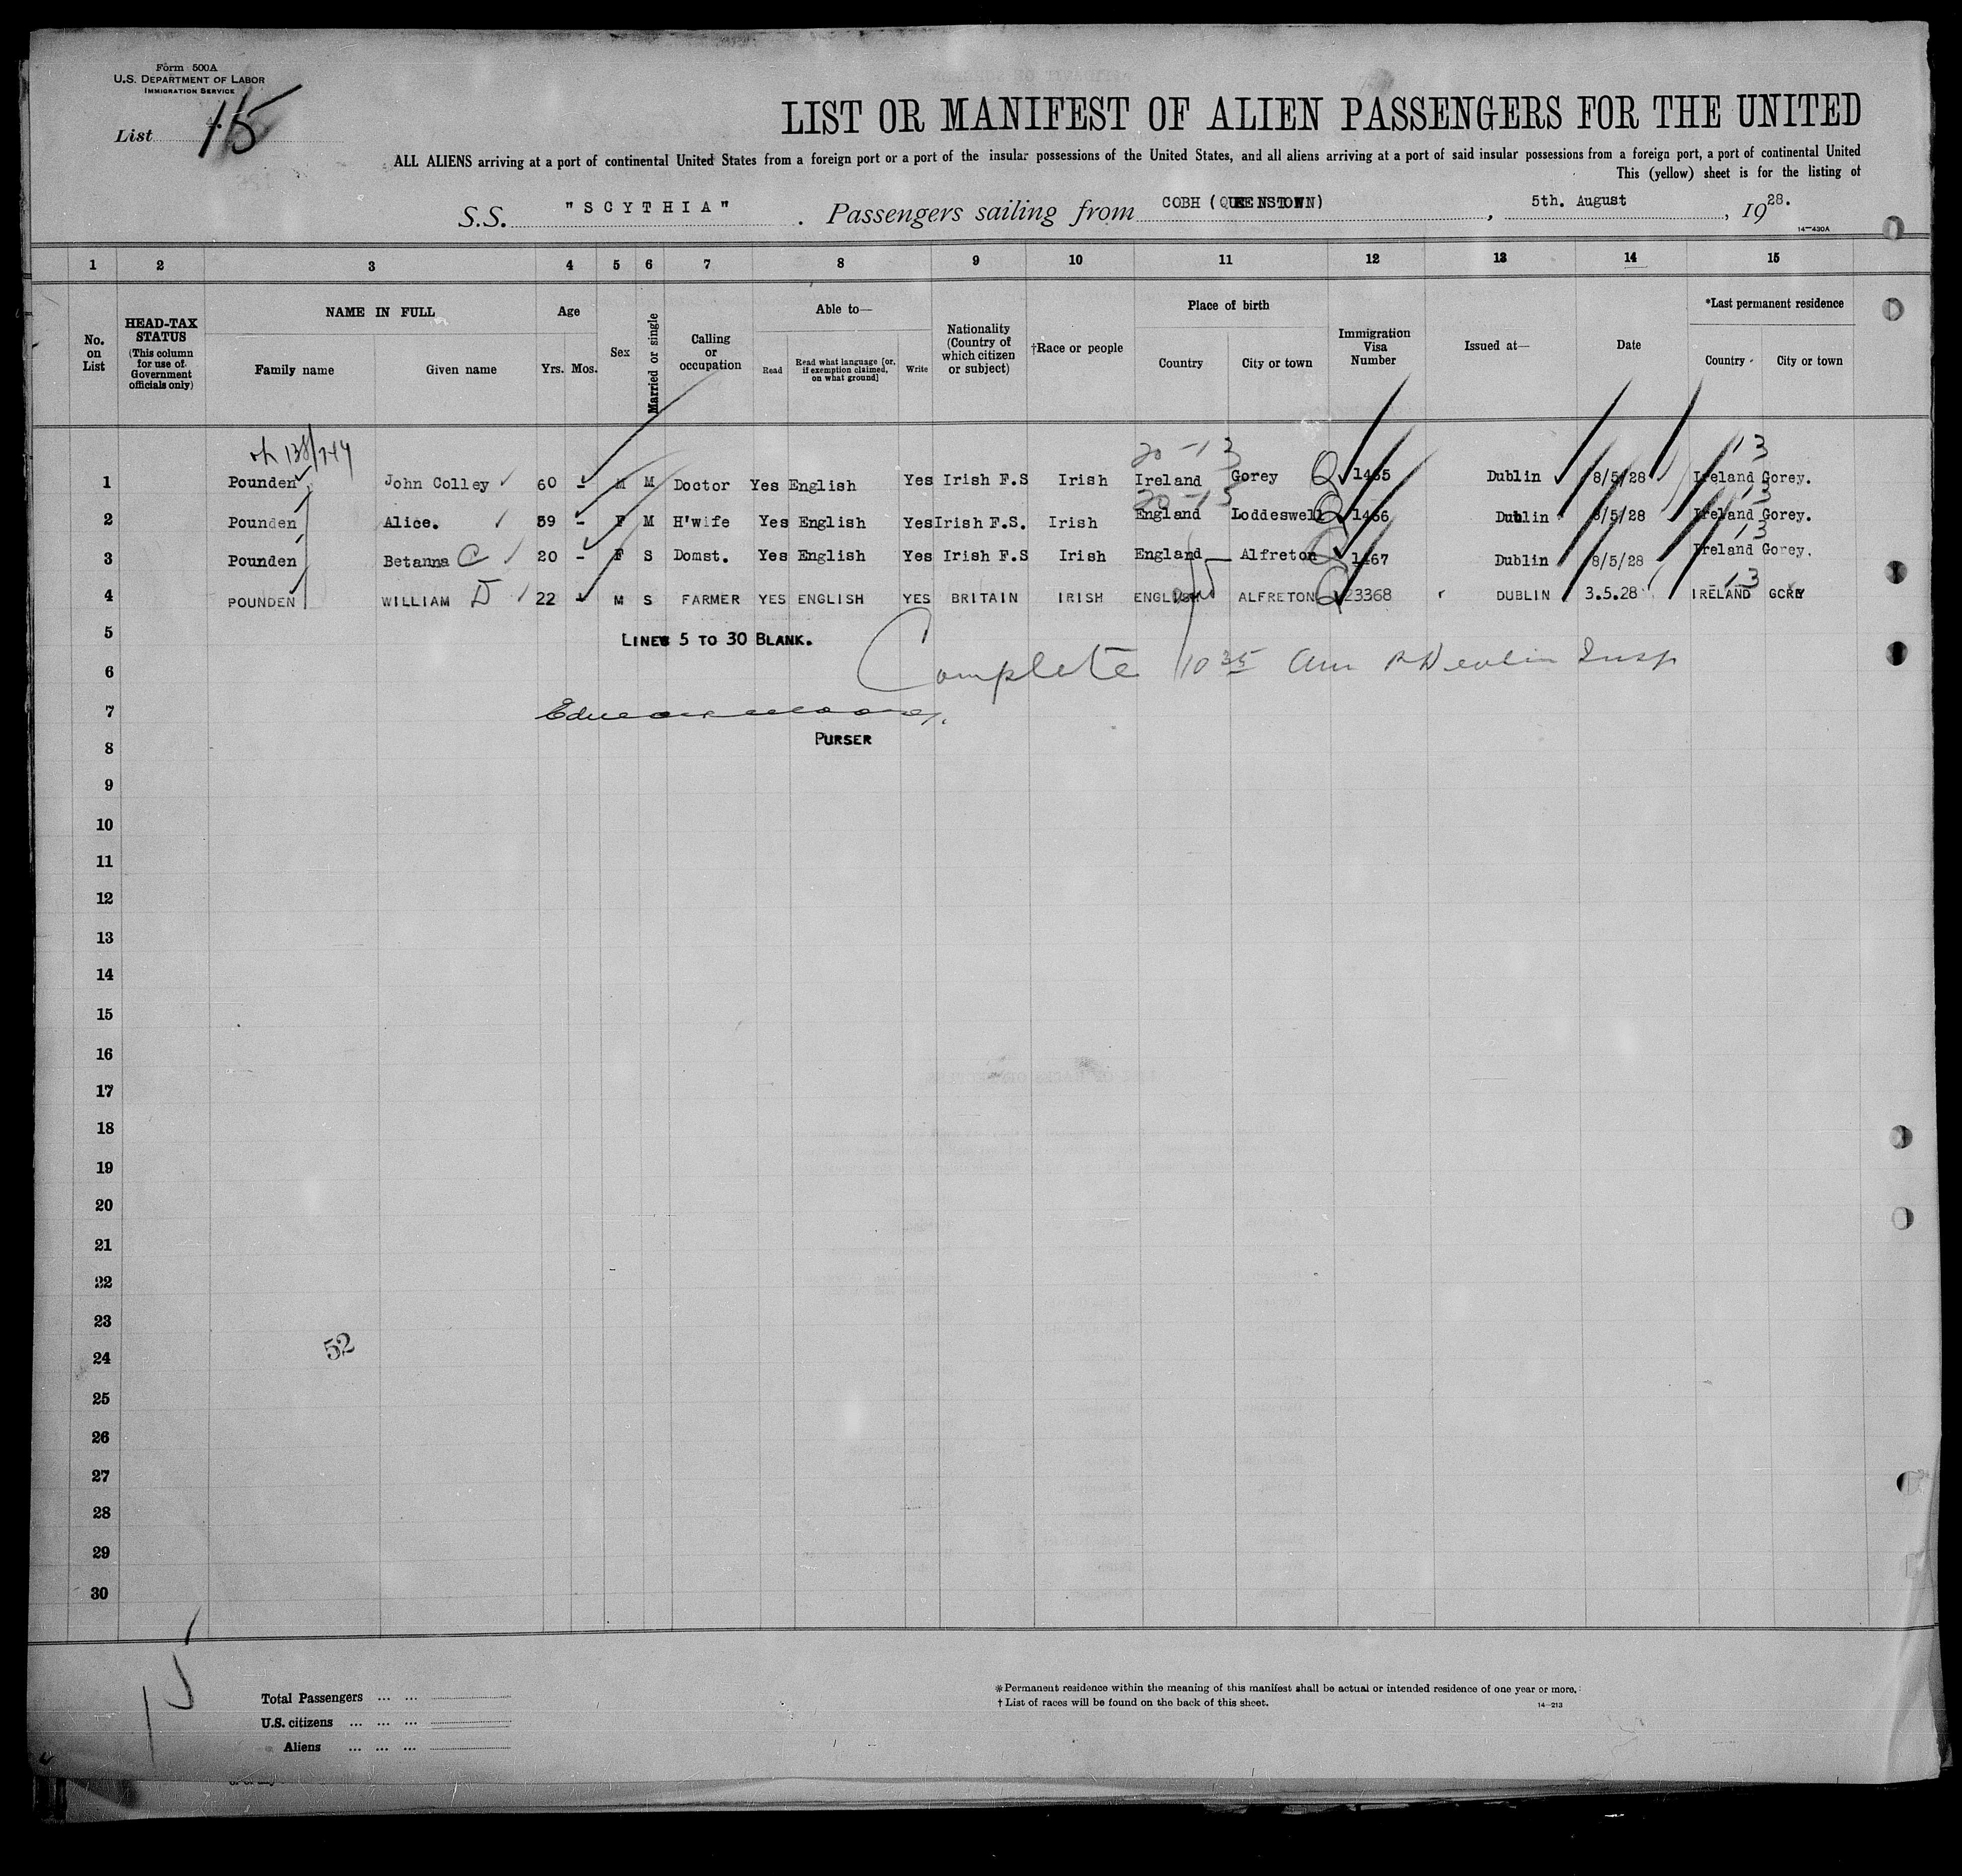 Form 500A
U.S. DEPARTMENT OF LABOR
IMMIGRATION SERVICE
List 15
LIST OR MANIFEST OF ALIEN PASSENGERS FOR THE UNITED
ALL ALIENS arriving at a port of continental United States from a foreign port or a port of the insular possessions of the United States, and all aliens arriving at a port of said insular possessions from a foreign port, a port of continental United
This (yellow) sheet is for the listing of
S.S. "SCYTHIA" . Passengers sailing from COBH (QUEENSTOWN) , 5th. August , 1928.
14—430A
1 2 3 4 5 6 7 8 9 10 11 12 13 14 15
No. on List
HEAD-TAX STATUS (This column for use of Government officials only)
NAME IN FULL
Family name Given name
Age
Yrs. Mos.
Sex
Married or single
Calling or occupation
Able to—
Read Read what language [or, if exemption claimed, on what ground] Write
Nationality (Country of which citizen or subject)
†Race or people
Place of birth
Country City or town
Immigration Visa Number
Issued at—
Date
*Last permanent residence
Country City or town
138/744 20-13 13
1 Pounden John Colley 60 - M M Doctor Yes English Yes Irish F.S Irish Ireland Gorey Q 1465 Dublin 8/5/28 Ireland Gorey.
20-13 13
2 Pounden Alice. 59 - F M H'wife Yes English Yes Irish F.S. Irish England Loddeswell Q 1466 Dublin 8/5/28 Ireland Gorey.
13
3 Pounden Betanna C 20 - F S Domst. Yes English Yes Irish F.S Irish England Alfreton Q 1467 Dublin 8/5/28 Ireland Gorey.
13
4 POUNDEN WILLIAM D 22 M S FARMER YES ENGLISH YES BRITAIN IRISH ENGLISH ALFRETON Q 23368 DUBLIN 3.5.28 IRELAND GOREY
5 LINES 5 TO 30 BLANK.
6 Complete 10 35 am Devlin Insp
7
8 PURSER
9
10
11
12
13
14
15
16
17
18
19
20
21
22
23
52
24
25
26
27
28
29
30
Total Passengers ... ...
U.S. citizens ... ... ...
Aliens ... ... ...
*Permanent residence within the meaning of this manifest shall be actual or intended residence of one year or more.
†List of races will be found on the back of this sheet.
14—213